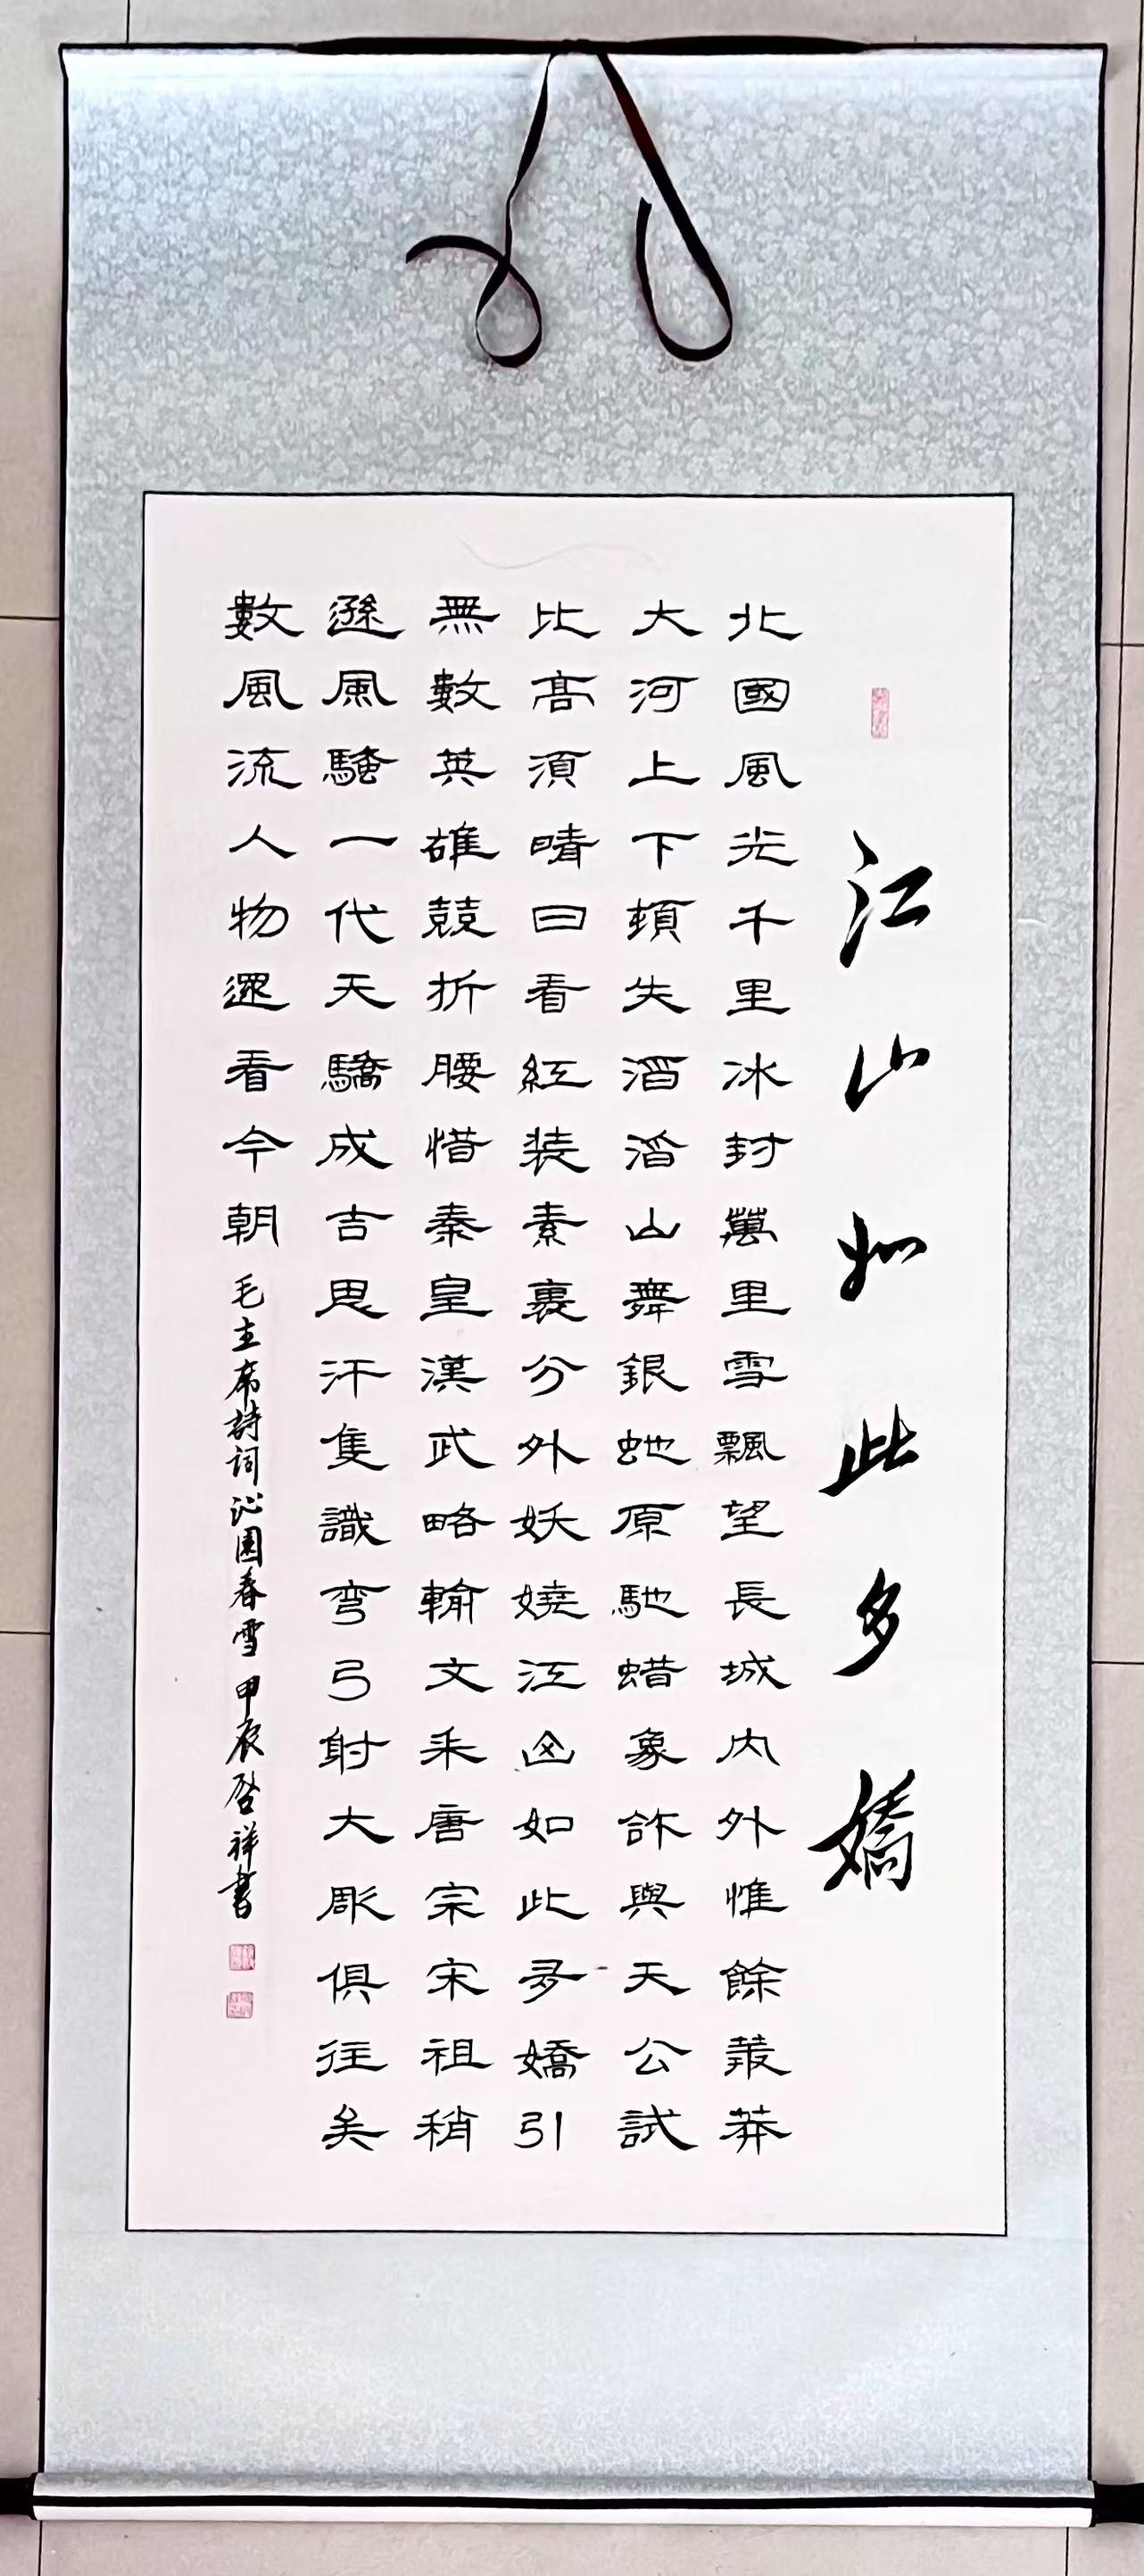 江山如此多嬌
北國風光千里冰封萬里雪飄望長城内外惟餘叢莽
大河上下頓失滔滔山舞銀蛇原馳蜡象與天公試
比高須晴日看紅装素裹分外妖嬈江山如此多嬌引
無數英雄競折腰惜秦皇漢武略輸文采唐宗宋祖稍
遜風騷一代天驕成吉思汗隻識弯弓射大彫俱往矣
數風流人物還看今朝 毛主席詩詞沁園春雪 甲辰啓祥書